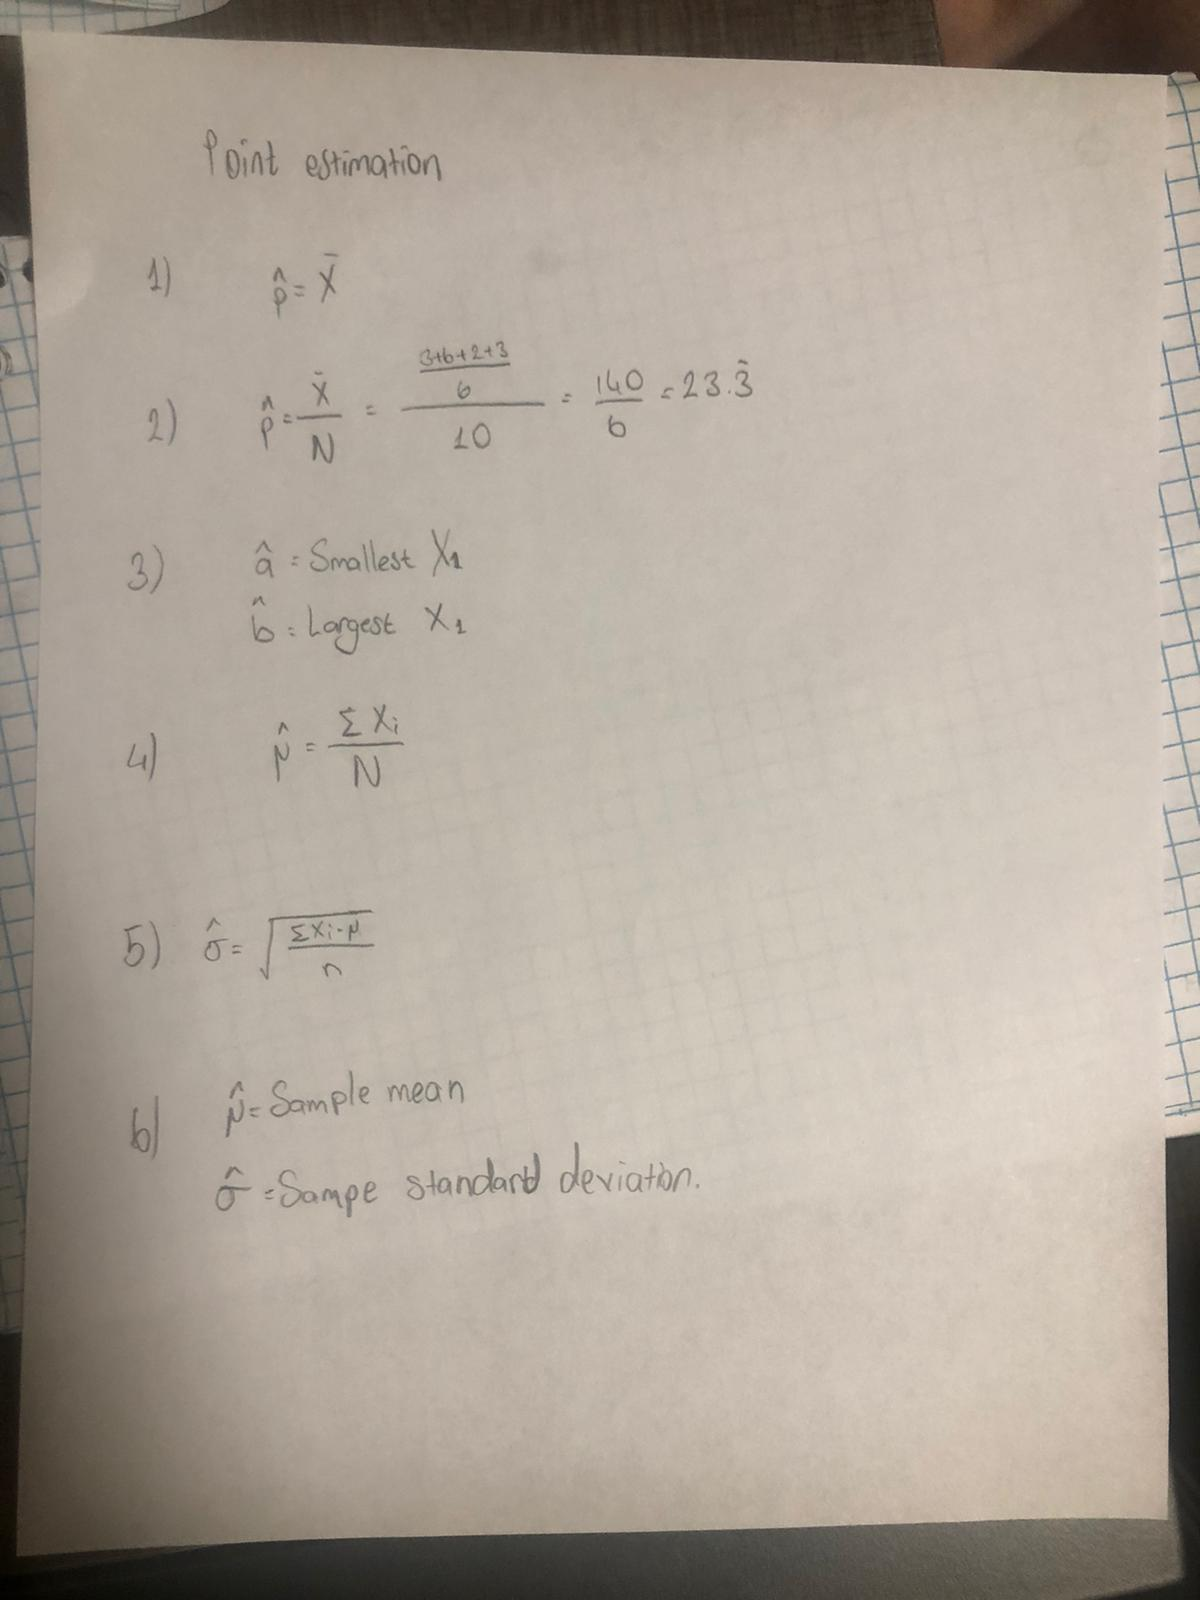 Point estimation
1) p̂ = X̄
2) p̂ = X̄/N = ((3+6+2+3)/6)/10 = 140/6 = 23.3̄
3) â = Smallest X₁
b̂ = Largest X₁
4) μ̂ = Σ Xi / N
5) σ̂ = √(ΣXi-μ / n)
6) μ̂ = Sample mean
σ̂ = Sampe standard deviation.